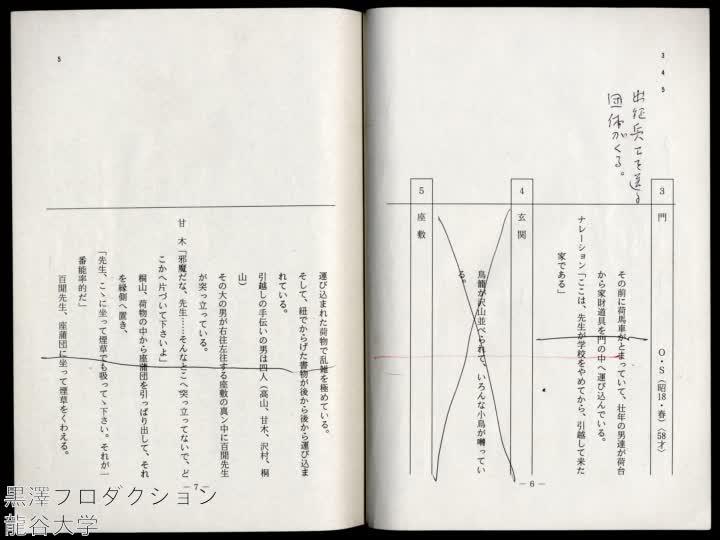 3
4
5
出征兵士を送る
団体がくる。
3 門 O・S（昭18・春）（58才）
その前に荷馬車がとまっていて、壮年の男達が荷台
から家財道具を門の中へ運び込んでいる。
ナレーション「ここは、先生が学校をやめてから、引越して来た
家である」
4 玄関
鳥籠が沢山並べられて、いろんな小鳥が囀ってい
る。
5 座敷
—6—
5
運び込まれた荷物で乱雑を極めている。
そして、紐でからげた書物が後から後から運び込ま
れている。
引越しの手伝いの男は四人（高山、甘木、沢村、桐
山）
その大の男が右往左往する座敷の真ン中に百閒先生
が突っ立っている。
甘木「邪魔だな、先生……そんなとこへ突っ立ってないで、ど
こかへ片づいて下さいよ」
桐山、荷物の中から座蒲団を引っぱり出して、それ
を縁側へ置き、
「先生、こゝに坐って煙草でも吸ってゝ下さい。それが一
番能率的だ」
百閒先生、座蒲団に坐って煙草をくわえる。
—7—
黒澤プロダクション
龍谷大学